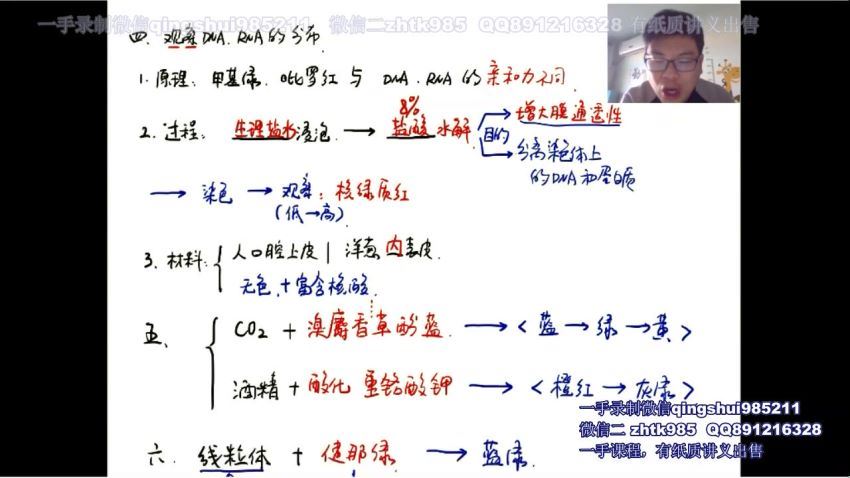 一手录制微信qingshui985211 微信二zhtk985 QQ891216328 有纸质讲义出售
四、观察DNA、RNA的分布
1.原理:甲基绿、吡罗红与DNA、RNA的亲和力不同
8%
2.过程:生理盐水浸泡→盐酸水解 目的 增大膜通透性
分离染色体上
的DNA和蛋白质
→染色→观察:核绿质红
(低→高)
3.材料:{人口腔上皮|洋葱内表皮
无色+富含核酸
五、{CO2+溴麝香草酚蓝→<蓝→绿→黄>
酒精+酸化重铬酸钾→<橙红→灰绿>
一手录制微信qingshui985211
微信二 zhtk985 QQ891216328
六.线粒体+健那绿→蓝绿
一手课程,有纸质讲义出售